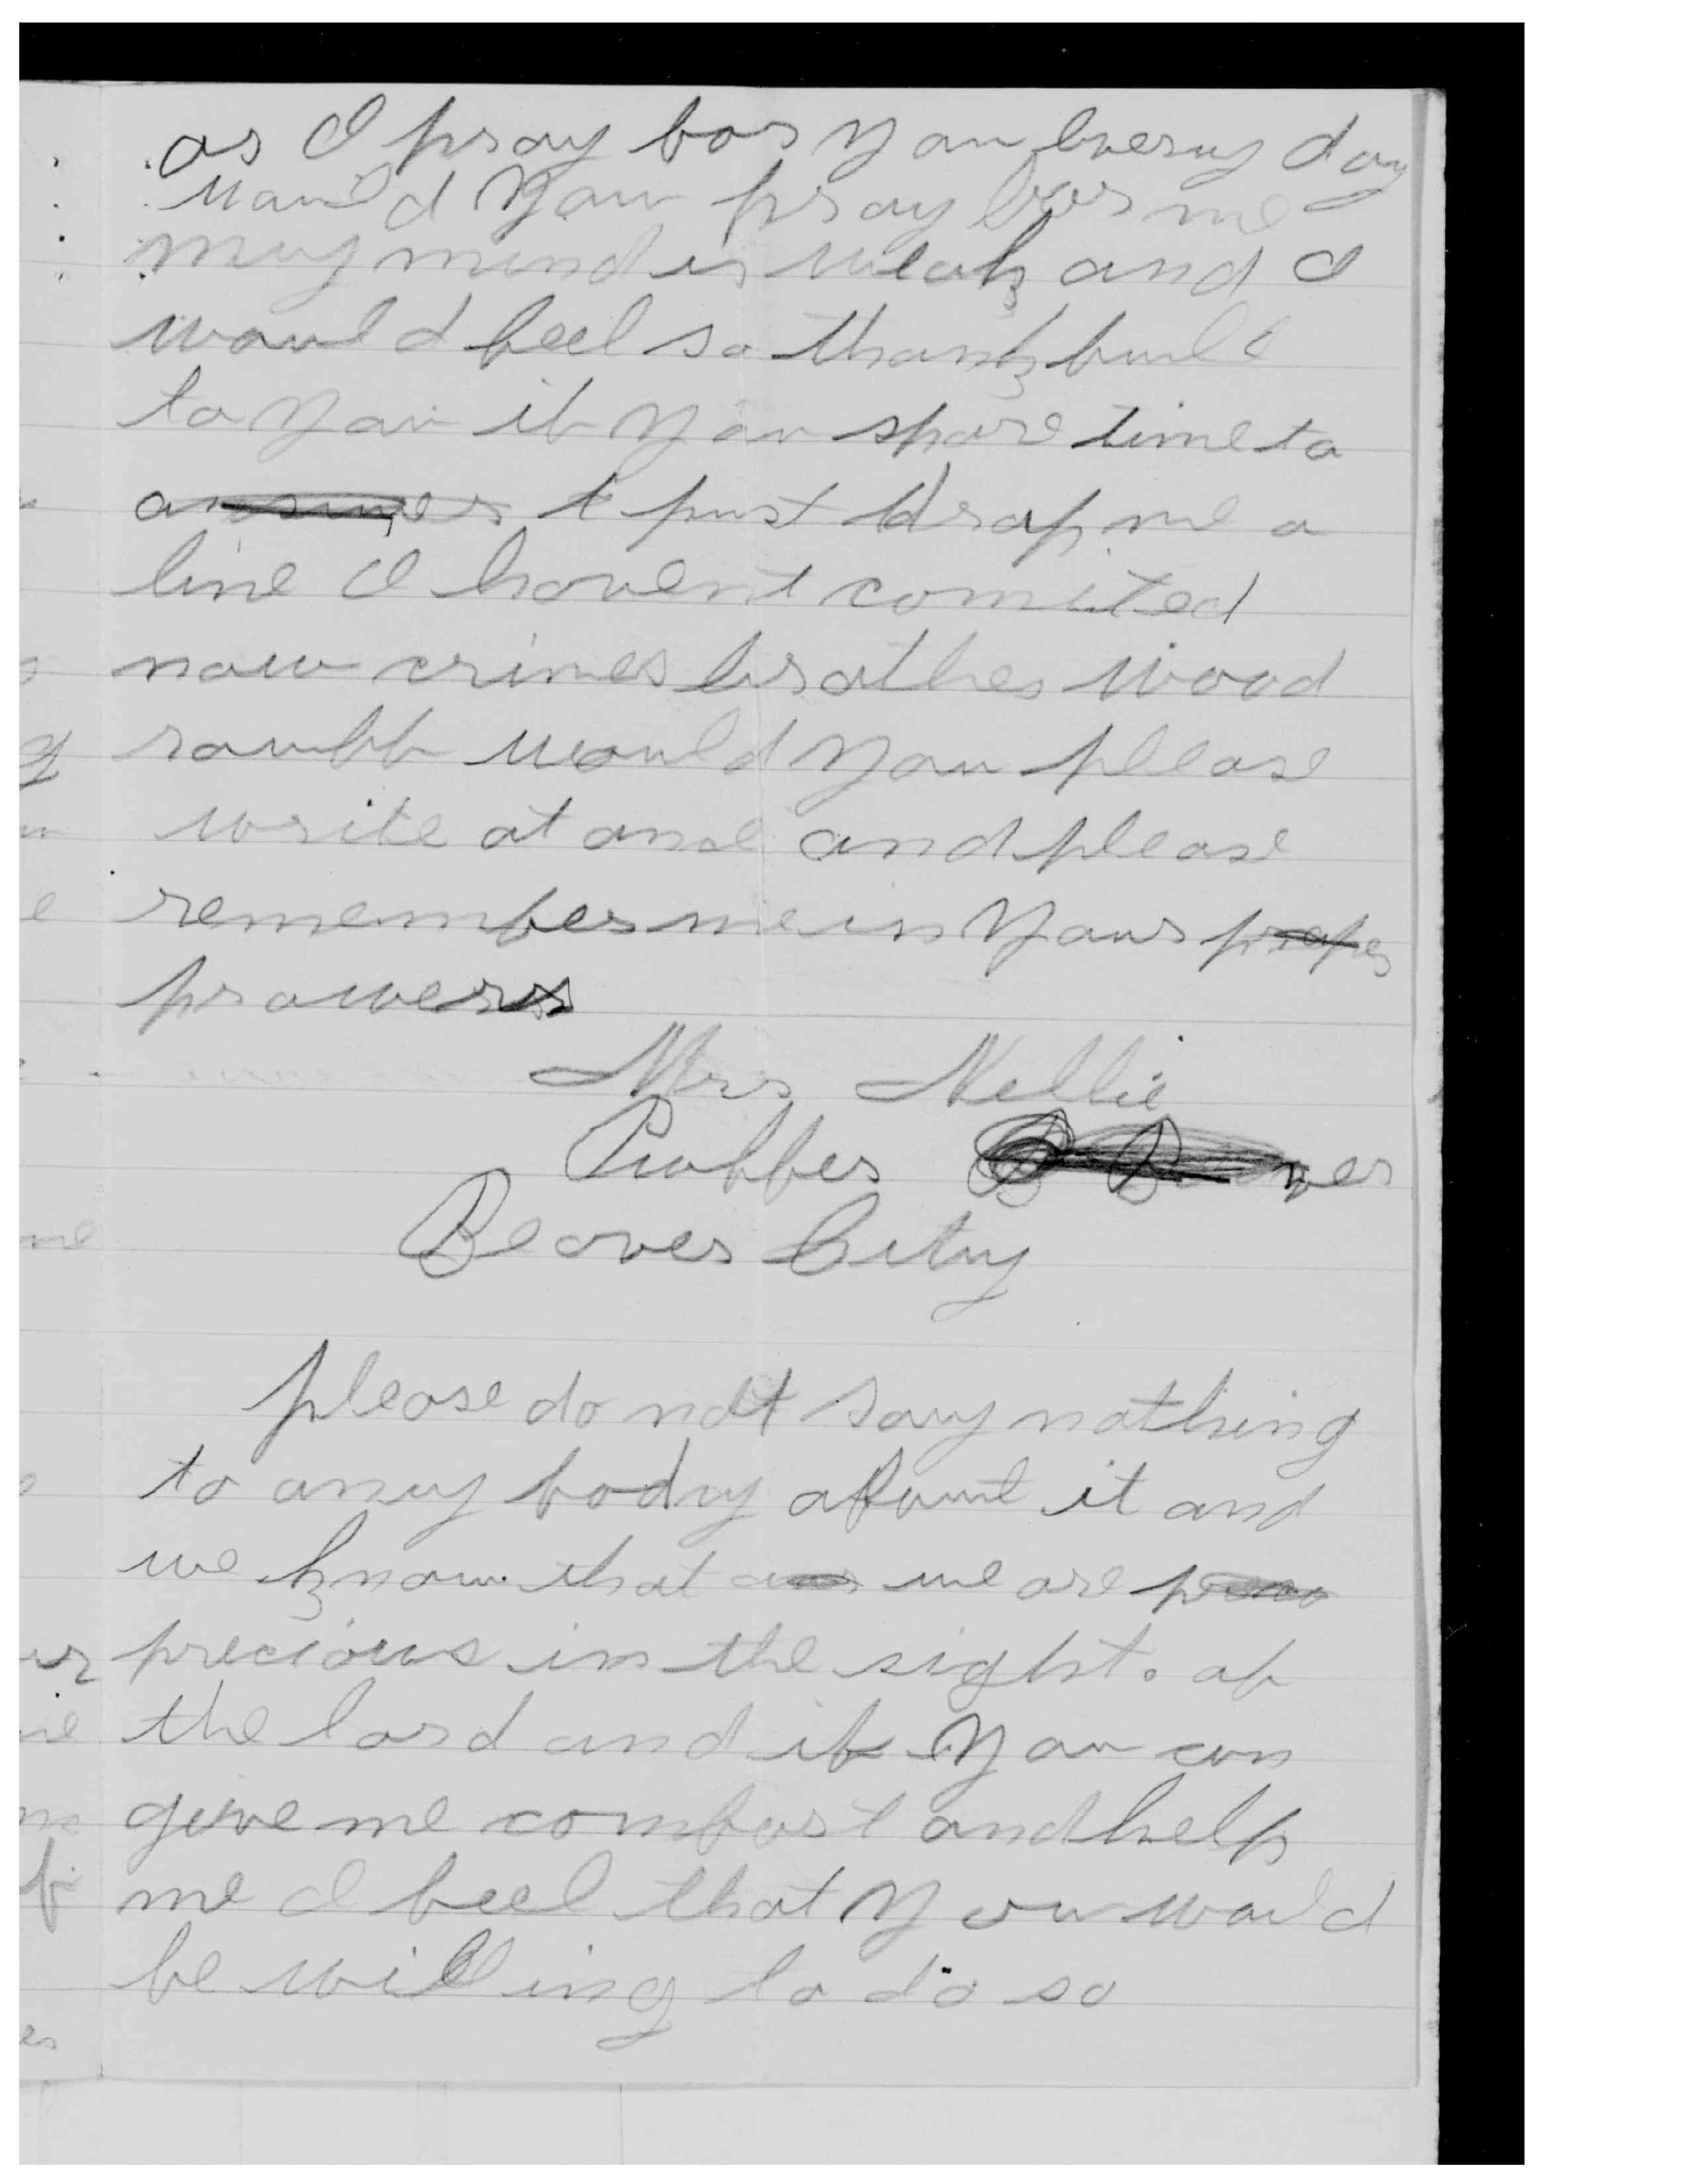 as I pray for you every day
would you pray for me
my mind is weak and I
would feel so thankfull
to you if you spare time to
answer t just drop me a
line I havent comited
now crimes brother Wood
ruff would you please
write at once and please
remember me in your
prawers
Mrs Nellie
Beaver City
please do not say nothing
to any body about it and
we know that we are
precious in the sight. of
the lord and if you can
give me comfort and help
me I feel that you would
be willing to do so